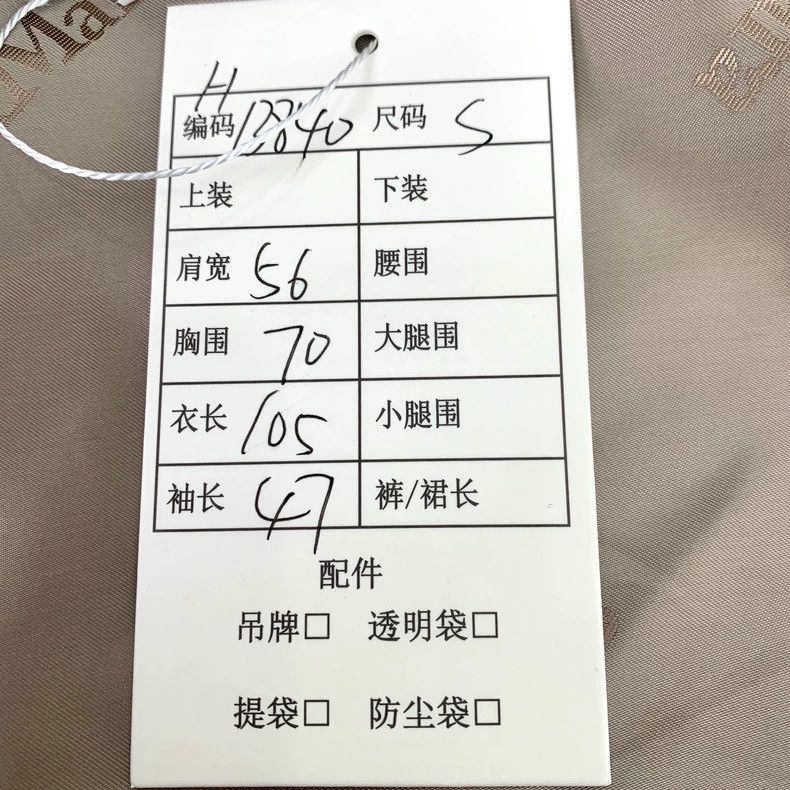 Ma
H
编码 13840 尺码 S
上装 下装
肩宽 56 腰围
胸围 70 大腿围
衣长 105 小腿围
袖长 47 裤/裙长
配件
吊牌□ 透明袋□
提袋□ 防尘袋□